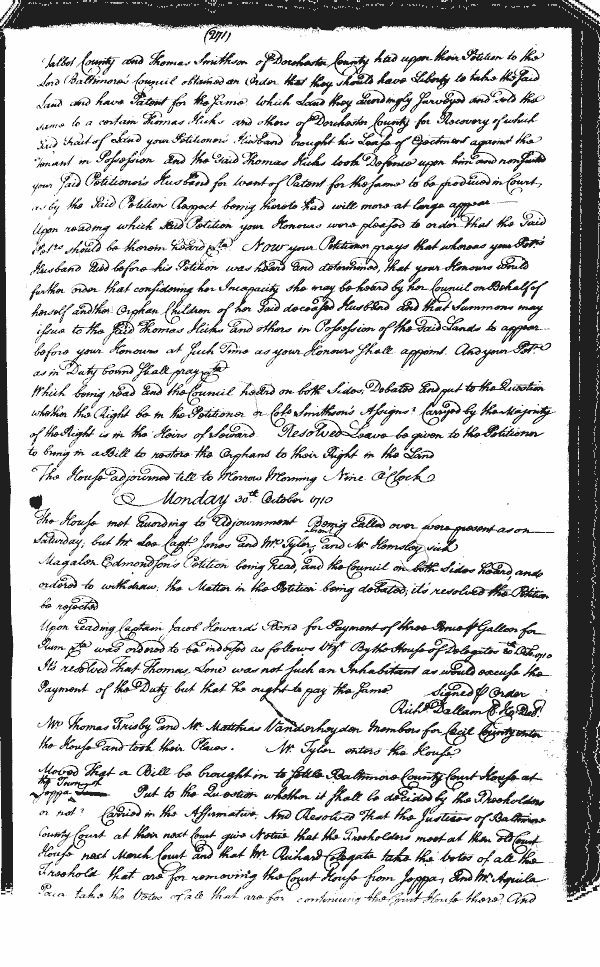 (271)
Talbot County and Thomas Smithson of Dorchester County had upon their Petition to the
Lord Baltimore's Council obtained an Order that they should have Liberty to take the said
Land and have Patent for the same which Land they accordingly Surveyed and sold the
same to a certain Thomas Hicks and others of Dorchester County for Recovery of which
said Tract of Land your Petitioners Husband brought his Lease of Ejectment against the
Tenant in Possession and the said Thomas Hicks took Defence upon him and nonsuited
your said Petitioner's Husband for want of Patent for the same to be produced in Court,
as by the said Petition Respect being thereto had will more at large appear
Upon reading which said Petition your Honours were pleased to order that the said
should be therein heard &ca Now your Petitioner prays that whereas your Petrs
Husband died before his Petition was heard and determined, that your Honours would
further order that considering her Incapacity she may be heard by her Council on Behalf of
herself and her Orphan Children of her said deceased Husband and that Summons may
issue to the said Thomas Hicks and others in Possession of the said Lands to appear
before your Honours at such Time as your Honours shall appoint. And your Petr
as in Duty bound shall pray &ca
Which being read and the Council heard on both Sides, Debated and put to the Question
whether the Right be in the Petitioner or Colo Smithson's Assigns? Carryed by the Majority
of the Right is in the Heirs of Seward. Resolved Leave be given to the Petitioner
to bring in a Bill to restore the Orphans to their Right in the Land
The House adjourned till to Morrow Morning Nine O'Clock
Monday 30th October 1710
The House met according to Adjournment. Being called over were present as on
Saturday, but Mr Lee Capt Jones and Mr Tyler, and Mr Hemsley sick
Magalen Edmondson's Petition being read and the Council on both Sides heard and
ordered to withdraw, the Matter in the Petition being debated, it's resolved the Petition
be rejected
Upon reading Captain Jacob Howard's Bond for Payment of three Pence P Gallon for
Rum &ca was ordered to be indorsed as follows Vizt By the House of Delegates 30 Octo 1710
It's resolved that Thomas Lone was not such an Inhabitant as would excuse the
Payment of the Duty but that he ought to pay the same Signed P Order
Richd Dallam Cl Ho Del.
Mr Thomas Frisby and Mr Matthias Vanderheyden Members for Cecil County enter
the House and took their Places. Mr Tyler enters the House
Moved That a Bill be brought in to settle Baltimore County Court House at
the Town of
Joppa Put to the Question whether it shall be decided by the Freeholders
or not? Carried in the Affirmative, And Resolved That the Justices of Baltimore
County Court at their next Court give Notice that the Freeholders meet at their old Court
House next March Court and that Mr Richard Colegate take the Votes of all the
Freehold that are for removing the Court House from Joppa, and Mr Aquila
Paca take the Votes of all that are for continuing the Court House there, And